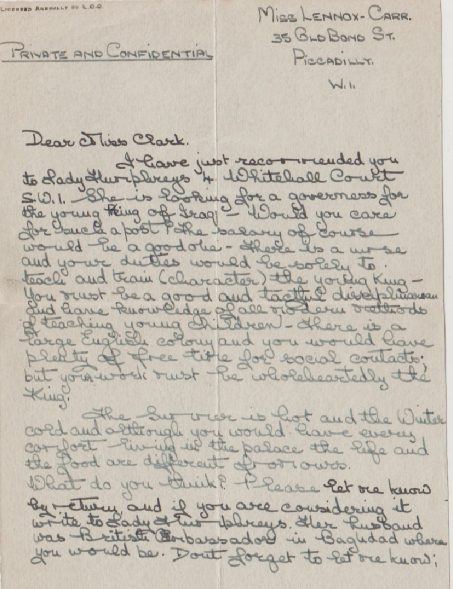 Licensed Annually by L.C.C.
Miss Lennox-Carr.
35 Old Bond St.
Piccadilly.
W.1.
Private and Confidential
Dear Miss Clark.
I have just recommended you
to Lady Humphreys 4 Whitehall Court
S.W.1. She is looking for a governess for
the young King of Iraq - Would you care
for such a post? The salary of course
would be a good one - there is a nurse
and your duties would be solely to
teach and train (character) the young King -
You must be a good and tactful disciplinarian
and have knowledge of all modern methods
of teaching young children - there is a
large English colony and you would have
plenty of free time for social contacts;
but your work must be wholeheartedly the
King.
The summer is hot and the Winter
cold and although you would have every
comfort living in the palace the life and
the food are different from ours.
What do you think? Please let me know
by return and if you are considering it
write to Lady Humphreys. Her husband
was British Ambassador in Baghdad where
you would be. Dont forget to let me know;